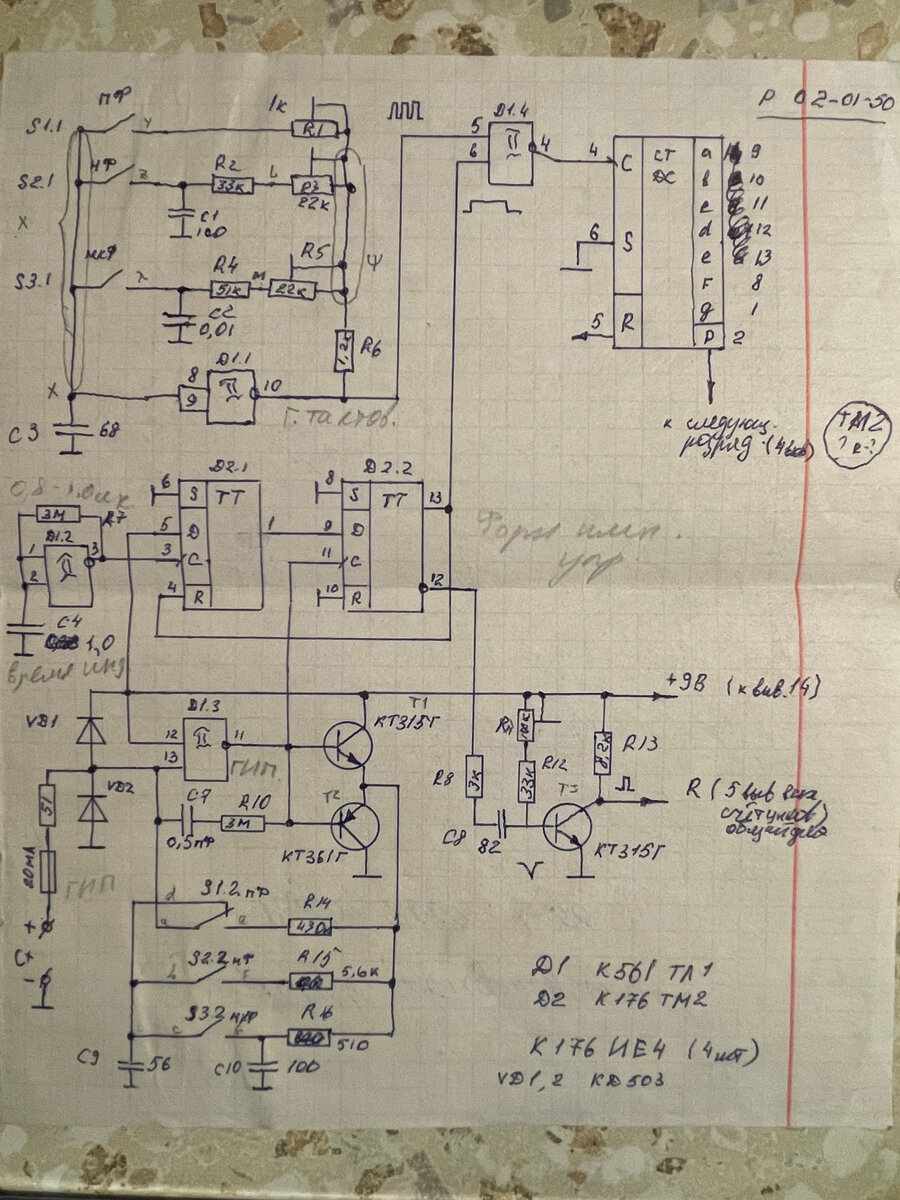 Р 02-01-50
S1.1 ПФ y 1к R1
S2.1 НФ z R2 33к L R3 22к
C1 100
X
S3.1 МКФ λ R4 51к м R5 22к
C2 0,01
Ψ
R6 1,2к
X 8 9 D1.1 10
Г. тактов.
C3 68
5 6 D1.4 4
4 C CT DC a 9
b 10
c 11
6 S d 12
e 13
F 8
5 R g 1
P 2
к следующ.
разряд (4
ТМ2
D2.1 D2.2
6 S TT 8 S TT 13
5 D 1 9 D
3 C 11 C 12
4 R 10 R
Форм имп.
упр.
3М R7
D1.2
1 2 3
C4 1,0
время инд
+9В (к выв. 14)
VD1
D1.3
12 13 11
ГИП.
T1 КТ315Г
VD2
C7 0,5пФ R10 3М
T2 КТ361Г
51
20мА
ГИП
R8 3к
C8 82
100к
R12 33к
T3 КТ315Г
R13 8,2к
R (5 выв
+
Cx
-
d S1.2 пФ
a a R14 430к
S2.2 нФ
b R15 5,6к
S3.2 мкФ
c R16 510
C9 56
C10 100
D1 К561 ТЛ1
D2 К176 ТМ2
К176 ИЕ4 (4шт)
VD1,2 КД503